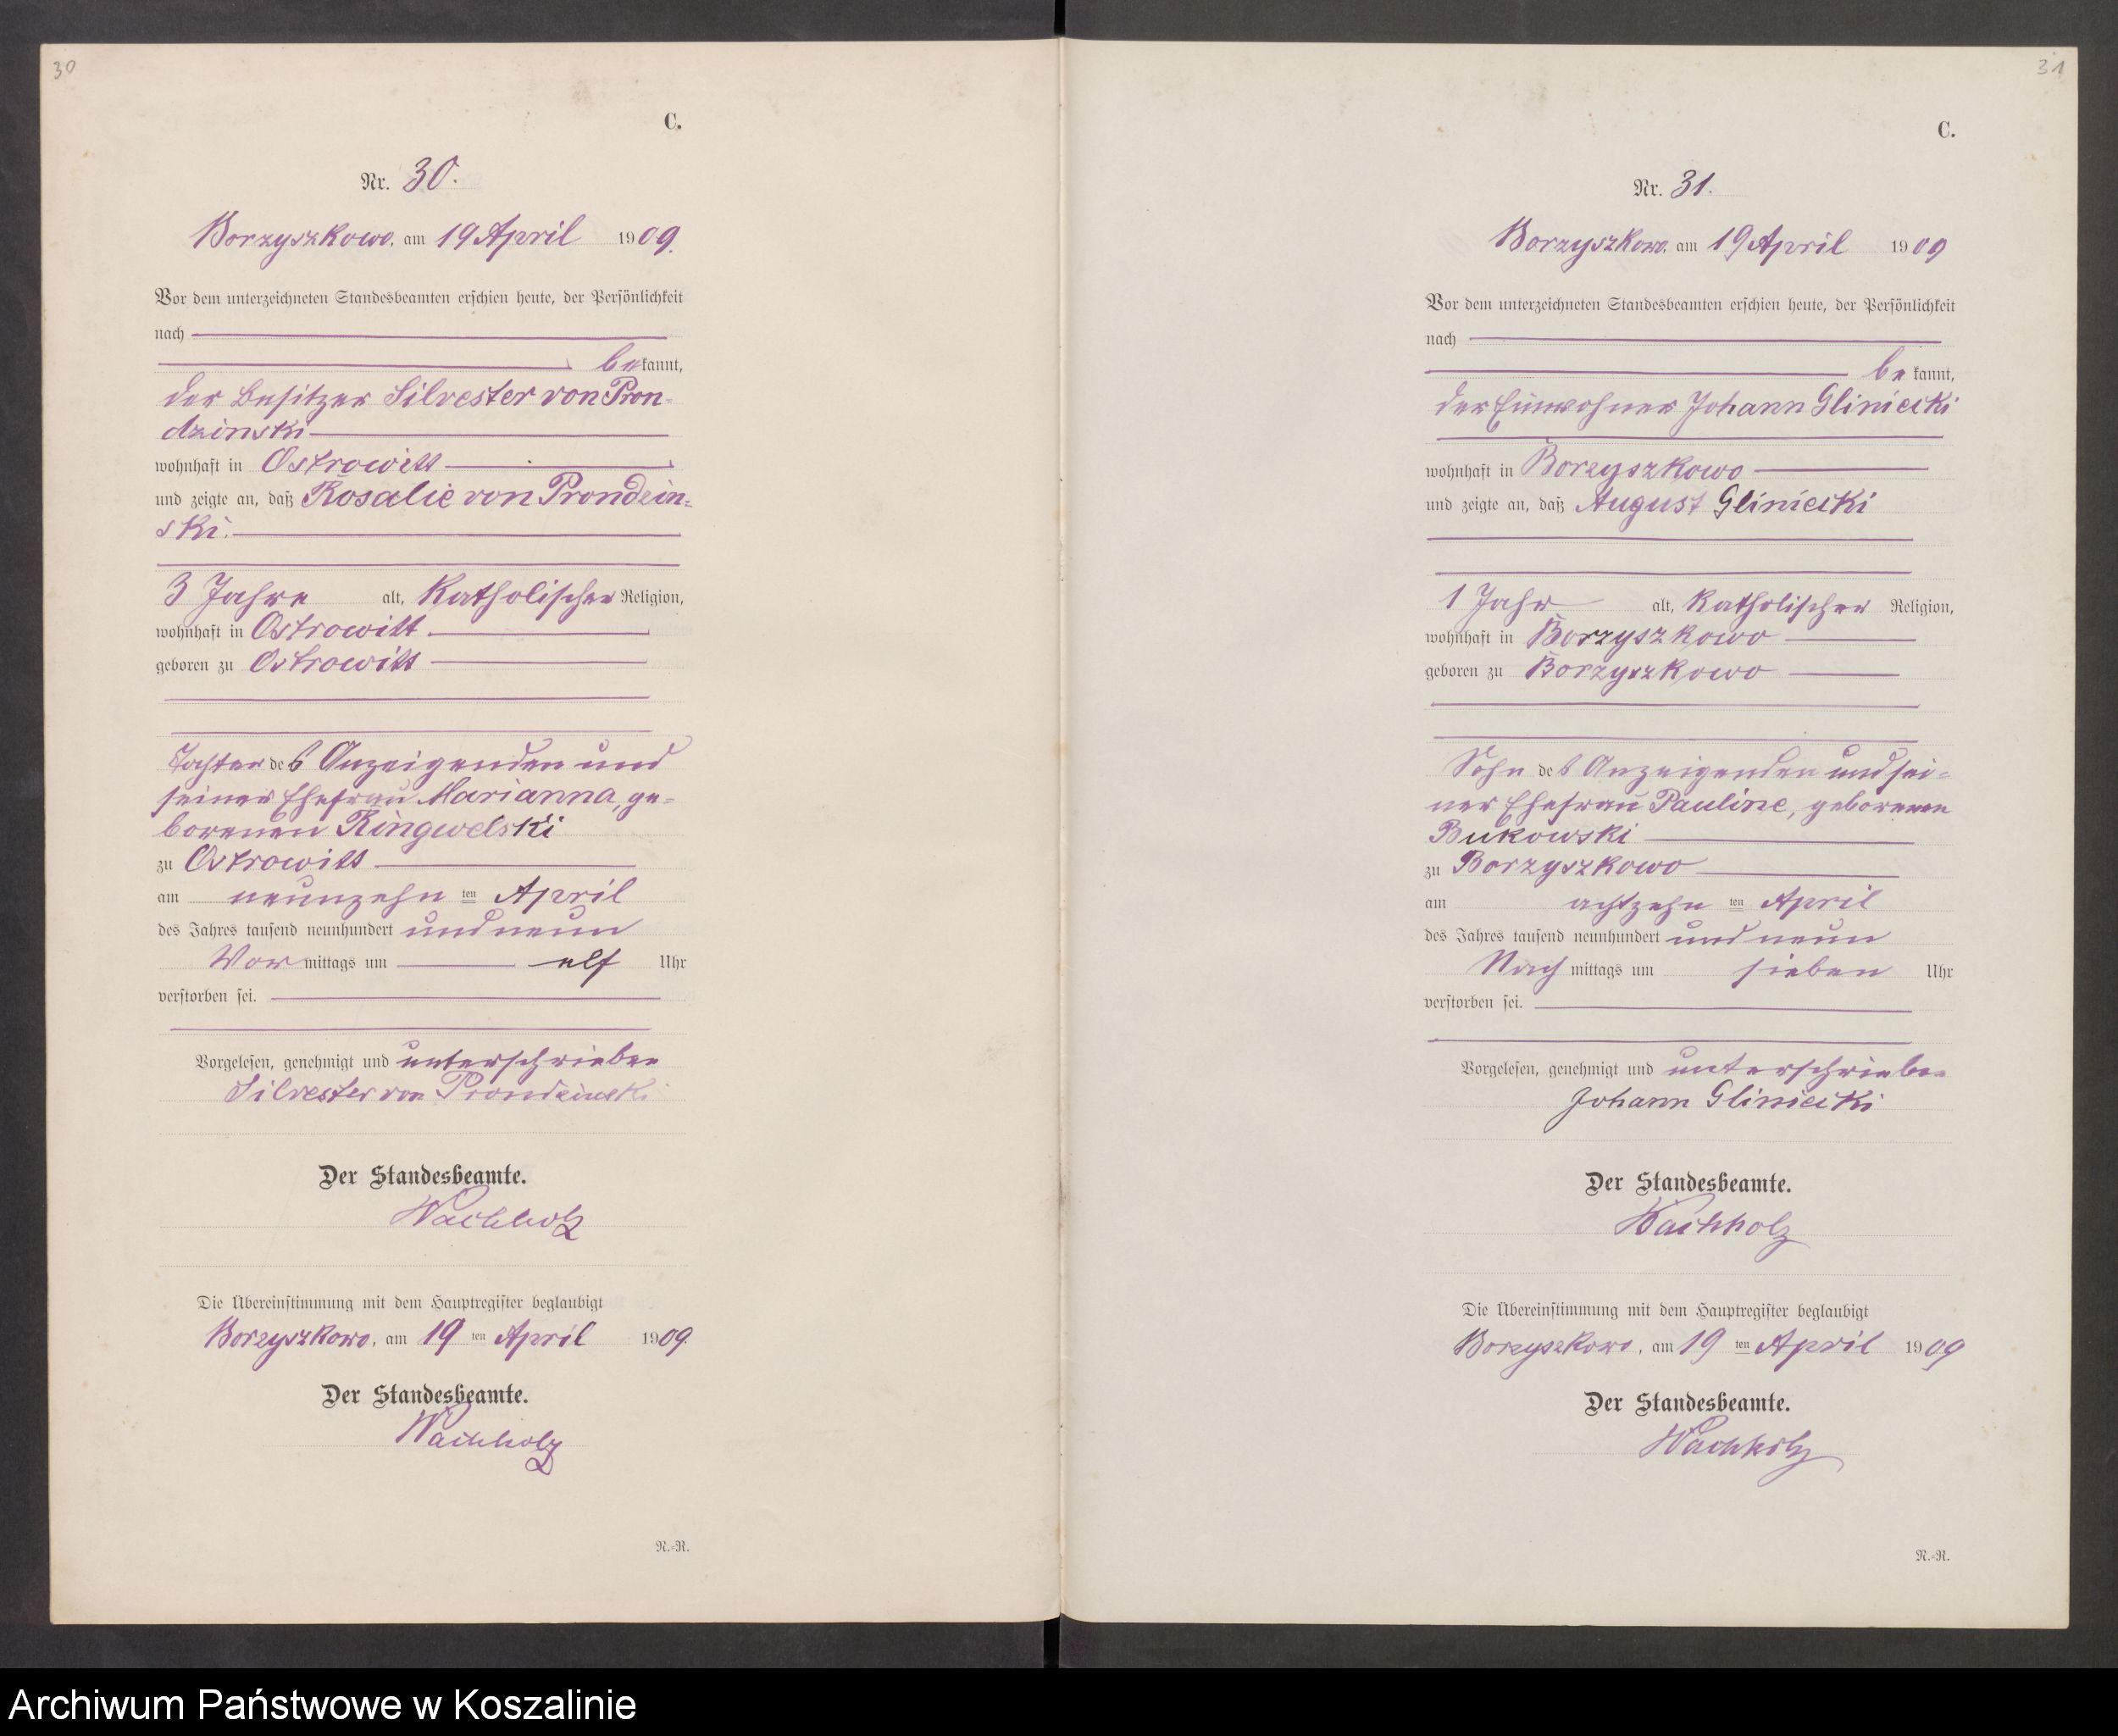 30
C.
Nr. 30.
Borzyszkowo, am 19 April 1909.
Vor dem unterzeichneten Standesbeamten erschien heute, der Persönlichkeit
nach
bekannt,
der Besitzer Silvester von Pron-
dzinski
wohnhaft in Ostrowitt
und zeigte an, daß Rosalie von Prondzin-
ski.
3 Jahre alt, katholischer Religion,
wohnhaft in Ostrowitt
geboren zu Ostrowitt
Tochter des Anzeigenden und
seiner Ehefrau Marianna, ge-
borenen Ringwelski
zu Ostrowitt
am neunzehn ten April
des Jahres tausend neunhundert und neun
Vormittags um elf Uhr
verstorben sei.
Vorgelesen, genehmigt und unterschrieben
Silvester von Prondzinski
Der Standesbeamte.
Wachholz
Die Übereinstimmung mit dem Hauptregister beglaubigt
Borzyszkowo, am 19 ten April 1909.
Der Standesbeamte.
Wachholz
N.-R.
31
C.
Nr. 31.
Borzyszkowo, am 19 April 1909
Vor dem unterzeichneten Standesbeamten erschien heute, der Persönlichkeit
nach
bekannt,
der Einwohner Johann Gliniecki
wohnhaft in Borzyszkowo
und zeigte an, daß August Gliniecki
1 Jahr alt, katholischer Religion,
wohnhaft in Borzyszkowo
geboren zu Borzyszkowo
Sohn des Anzeigenden und sei-
ner Ehefrau Pauline, geborenen
Bukowski
zu Borzyszkowo
am achtzehn ten April
des Jahres tausend neunhundert und neun
Nachmittags um sieben Uhr
verstorben sei.
Vorgelesen, genehmigt und unterschrieben
Johann Gliniecki
Der Standesbeamte.
Wachholz
Die Übereinstimmung mit dem Hauptregister beglaubigt
Borzyszkowo, am 19 ten April 1909
Der Standesbeamte.
Wachholz
N.-R.
Archiwum Państwowe w Koszalinie